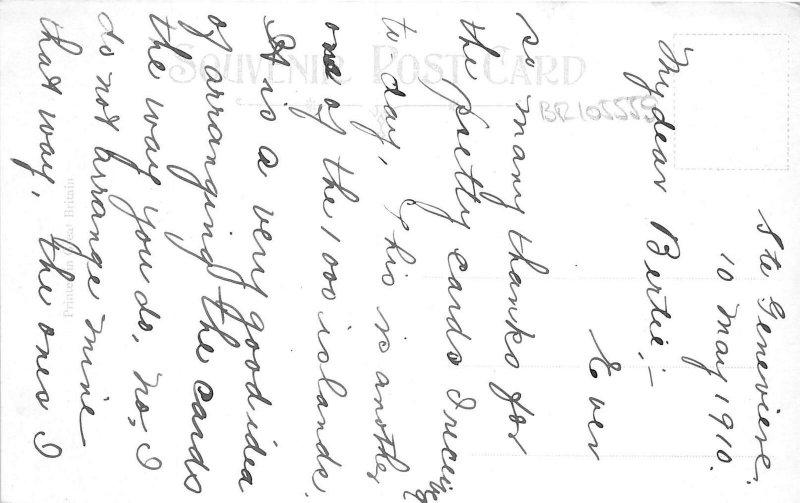 Ste Genevieve.
10 May 1910.
My dear Bertie:—
Ever
so many thanks for
the pretty cards I receive
to-day, this is another
one of the 1000 islands.
It is a very good idea
of arranging the cards
the way you do, no, I
do not arrange mine
that way, the ones I
SOUVENIR POST CARD
BR105559
Printed in Great Britain